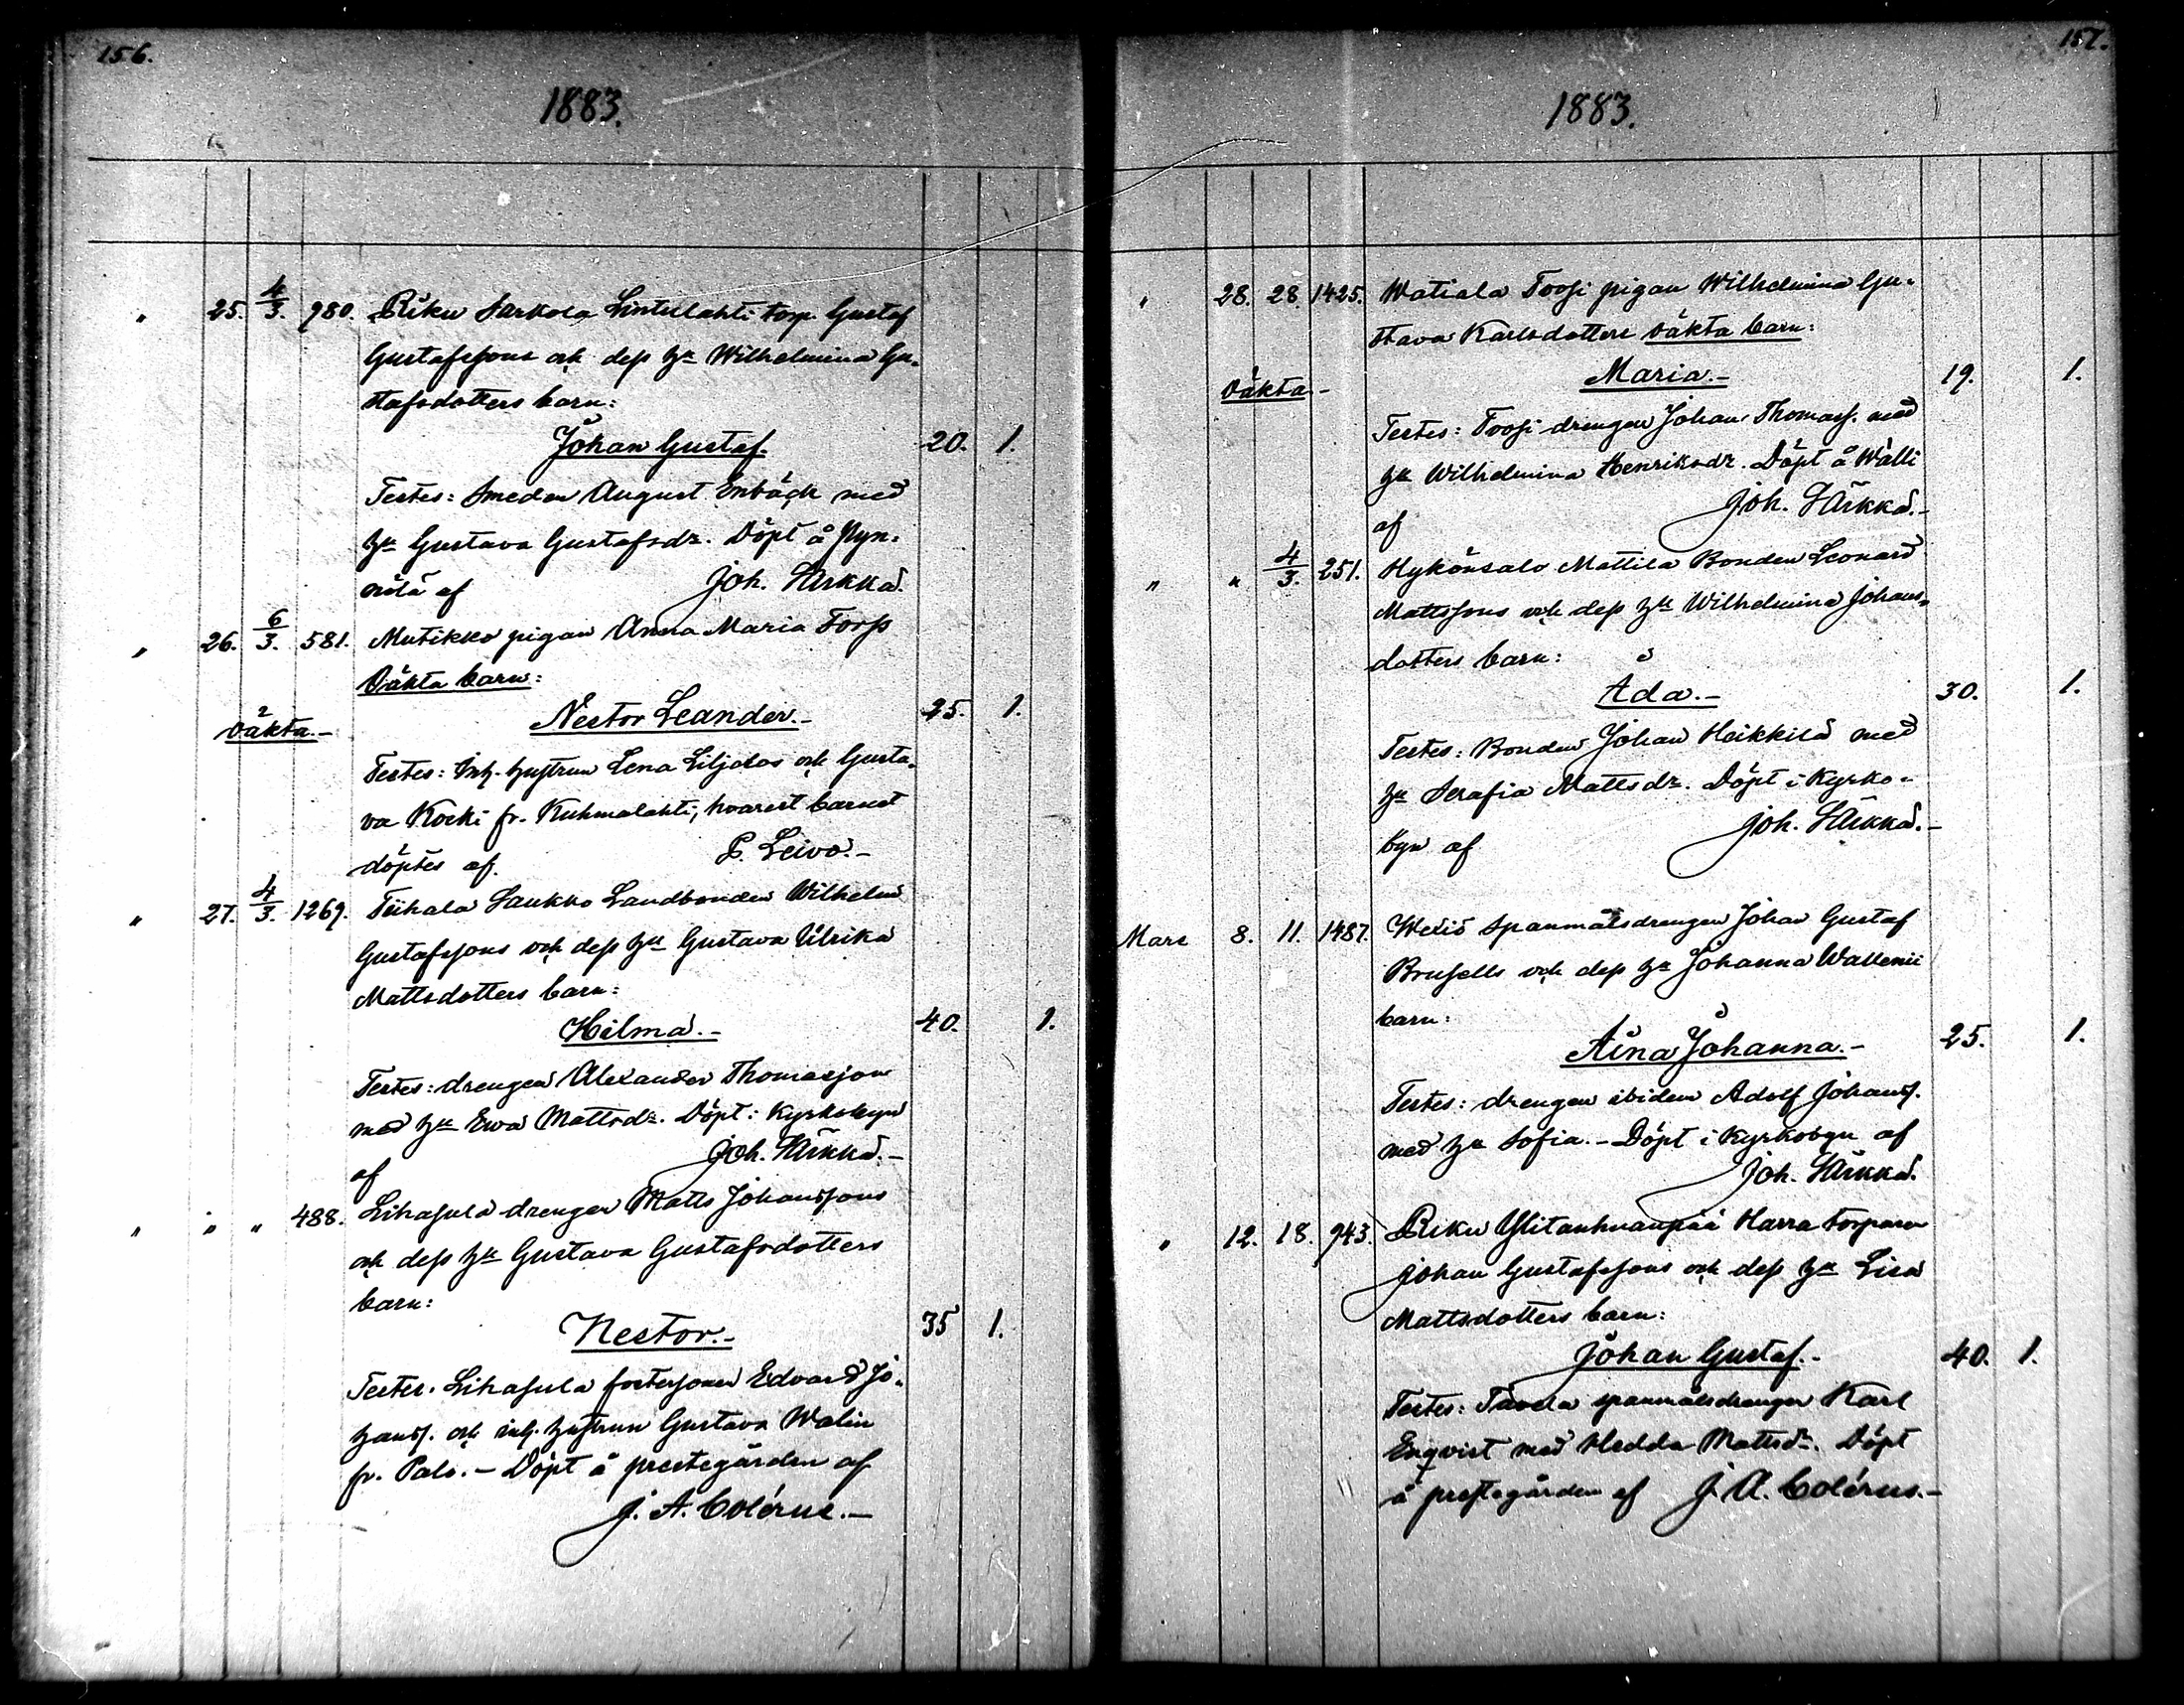 156.
1883.
" 25. 4/3. 980. Riku Sarkola Lintulahti torp. Gustaf
Gustafssons och dess hu Wilhelmina Gu-
stafsdotters barn:
Johan Gustaf. 20. 1.
Testes: Smeden August Enbäck med
hu Gustava Gustafsdr. Döpt å Pyn-
nölä af Joh. Särkkä.
" 26. 6/3. 581. Mutikko pigan Anna Maria Forss
Oäkta barn:
Oäkta.- Nestor Leander.- 25. 1.
Testes: Inh. hustrun Lena Liljalas och Gusta-
va Kocki fr. Kuhmalahti, hvarest barnet
döptes af. P. Leivo.-
" 27. 4/3. 1269. Tiihala Saukko Landbonden Wilhelm
Gustafssons och dess hu Gustava Ulrika
Mattsdotters barn:
Hilma.- 40. 1.
Testes: drengen Alexander Thomasson
med hu Ewa Mattsdr. Döpt i Kyrkobyn
af Joh. Särkkä.-
" " " 488. Lihasula drengen Matts Johanssons
och dess hu Gustava Gustafsdotters
barn:
Nestor.- 35 1.
Testes: Lihasula fostersonen Edvard Jo-
hanss. och inh. hustrun Gustava Walin
fr. Palo.- Döpt å prestegården af
J. A. Colérus.-
157.
1883.
" 28. 28. 1425. Watiala Toosi pigan Wilhelmina Gu-
stava Karlsdotters oäkta barn:
Oäkta.- Maria.- 19. 1.
Testes: Toosi drengen Johan Thomass. med
hu Wilhelmina Henriksdr. Döpt å Wälli
af Joh. Särkkä.-
" " 4/3. 251. Hykönsalo Mattila Bonden Leonard
Mattssons och dess hu Wilhelmina Johans-
dotters barn:
Ada.- 30. 1.
Testes: Bonden Johan Heikkilä med
hu Serafia Mattsdr. Döpt i Kyrko-
byn af Joh. Särkkä.-
Mars 8. 11. 1487. Weliö Spanmålsdrengen Johan Gustaf
Brusells och dess hu Johanna Wallenii
barn:
Aina Johanna.- 25. 1.
Testes: drengen ibidem Adolf Johanss.
med hu Sofia.- Döpt i Kyrkobyn af
Joh. Särkkä.
" 12. 18. 943. Riku Ylitanhuanpää Harra torparen
Johan Gustafssons och dess hu Lisa
Mattsdotters barn:
Johan Gustaf.- 40. 1.
Testes: Tavela spanmålsdrengen Karl
Enqvist med Hedda Mattsdr. Döpt
å prestegården af J. A. Colérus.-